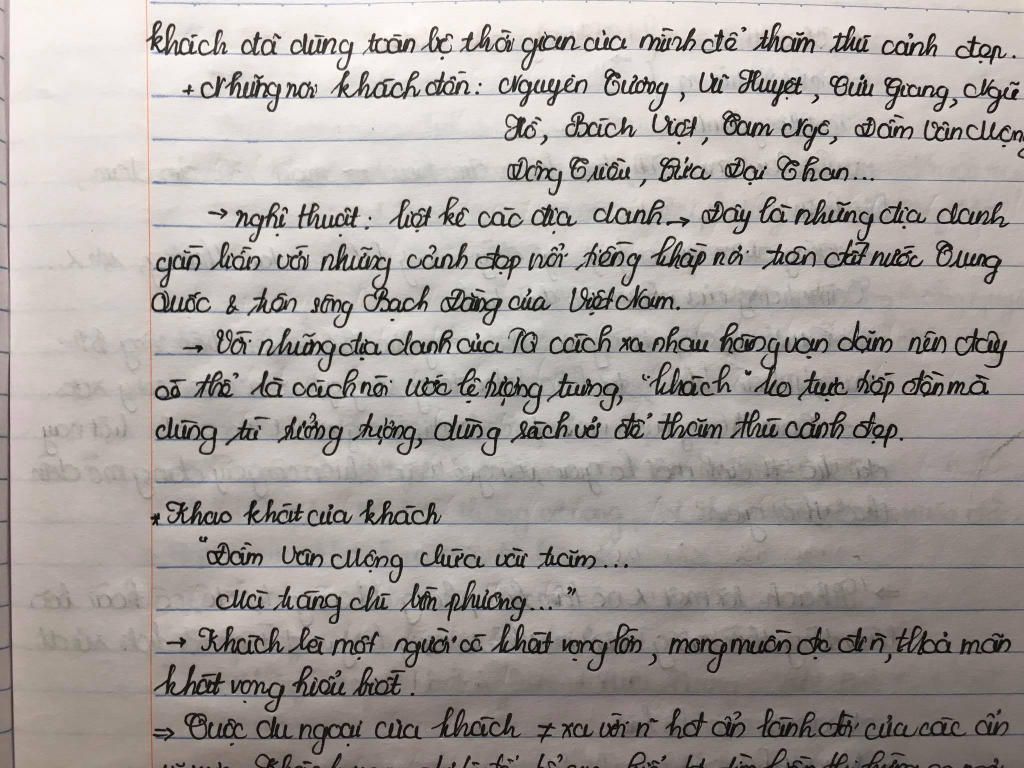 khách đã dùng toàn bộ thời gian của mình để thăm thú cảnh đẹp.
+ Những nơi khách đến: Nguyên Tương, Vũ Huyệt, Cửu Giang, Ngũ
Hồ, Bách Việt, Tam Ngô, Đầm Vân Mộng
Đông Triều, Cửa Đại Than...
→ nghệ thuật: liệt kê các địa danh → Đây là những địa danh
gắn liền với những cảnh đẹp nổi tiếng khắp nơi trên đất nước Trung
Quốc & trên sông Bạch Đằng của Việt Nam.
→ Với những địa danh của TQ cách xa nhau hàng vạn dặm nên đây
có thể là cách nói ước lệ tượng trưng, "khách" ko trực tiếp đến mà
dùng trí tưởng tượng, dùng sách vở để thăm thú cảnh đẹp.
* Khao khát của khách
"Đầm Vân Mộng chứa vài trăm...
Mà tráng chí bốn phương..."
→ Khách là một người có khát vọng lớn, mong muốn đc đi , thoả mãn
khát vọng hiểu biết.
⇒ Cuộc du ngoại của khách ≠ xa với n hđ ẩn lánh đời của các ẩn